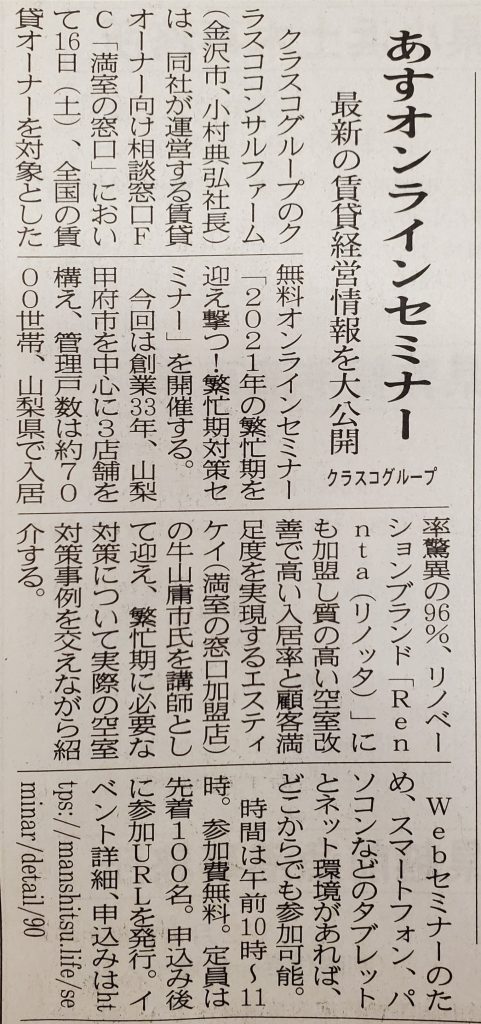 あすオンラインセミナー
最新の賃貸経営情報を大公開
クラスコグループ
クラスコグループのク
ラスココンサルファーム
(金沢市、小村典弘社長)
は、同社が運営する賃貸
オーナー向け相談窓口F
C「満室の窓口」におい
て16日(土)、全国の賃
貸オーナーを対象とした
無料オンラインセミナー
「2021年の繁忙期を
迎え撃つ!繁忙期対策セ
ミナー」を開催する。
今回は創業33年、山梨
甲府市を中心に3店舗を
構え、管理戸数は約70
00世帯、山梨県で入居
率驚異の96%、リノベー
ションブランド「Ren
nta(リノッタ)」に
も加盟し質の高い空室改
善で高い入居率と顧客満
足度を実現するエスティ
ケイ(満室の窓口加盟店)
の牛山庸市氏を講師とし
て迎え、繁忙期に必要な
対策について実際の空室
対策事例を交えながら紹
介する。
Webセミナーのた
め、スマートフォン、パ
ソコンなどのタブレット
とネット環境があれば、
どこからでも参加可能。
時間は午前10時〜11
時。参加費無料。定員は
先着100名。申込み後
に参加URLを発行。イ
ベント詳細、申込みはht
tps://manshitsu.life/se
minar/detail/90